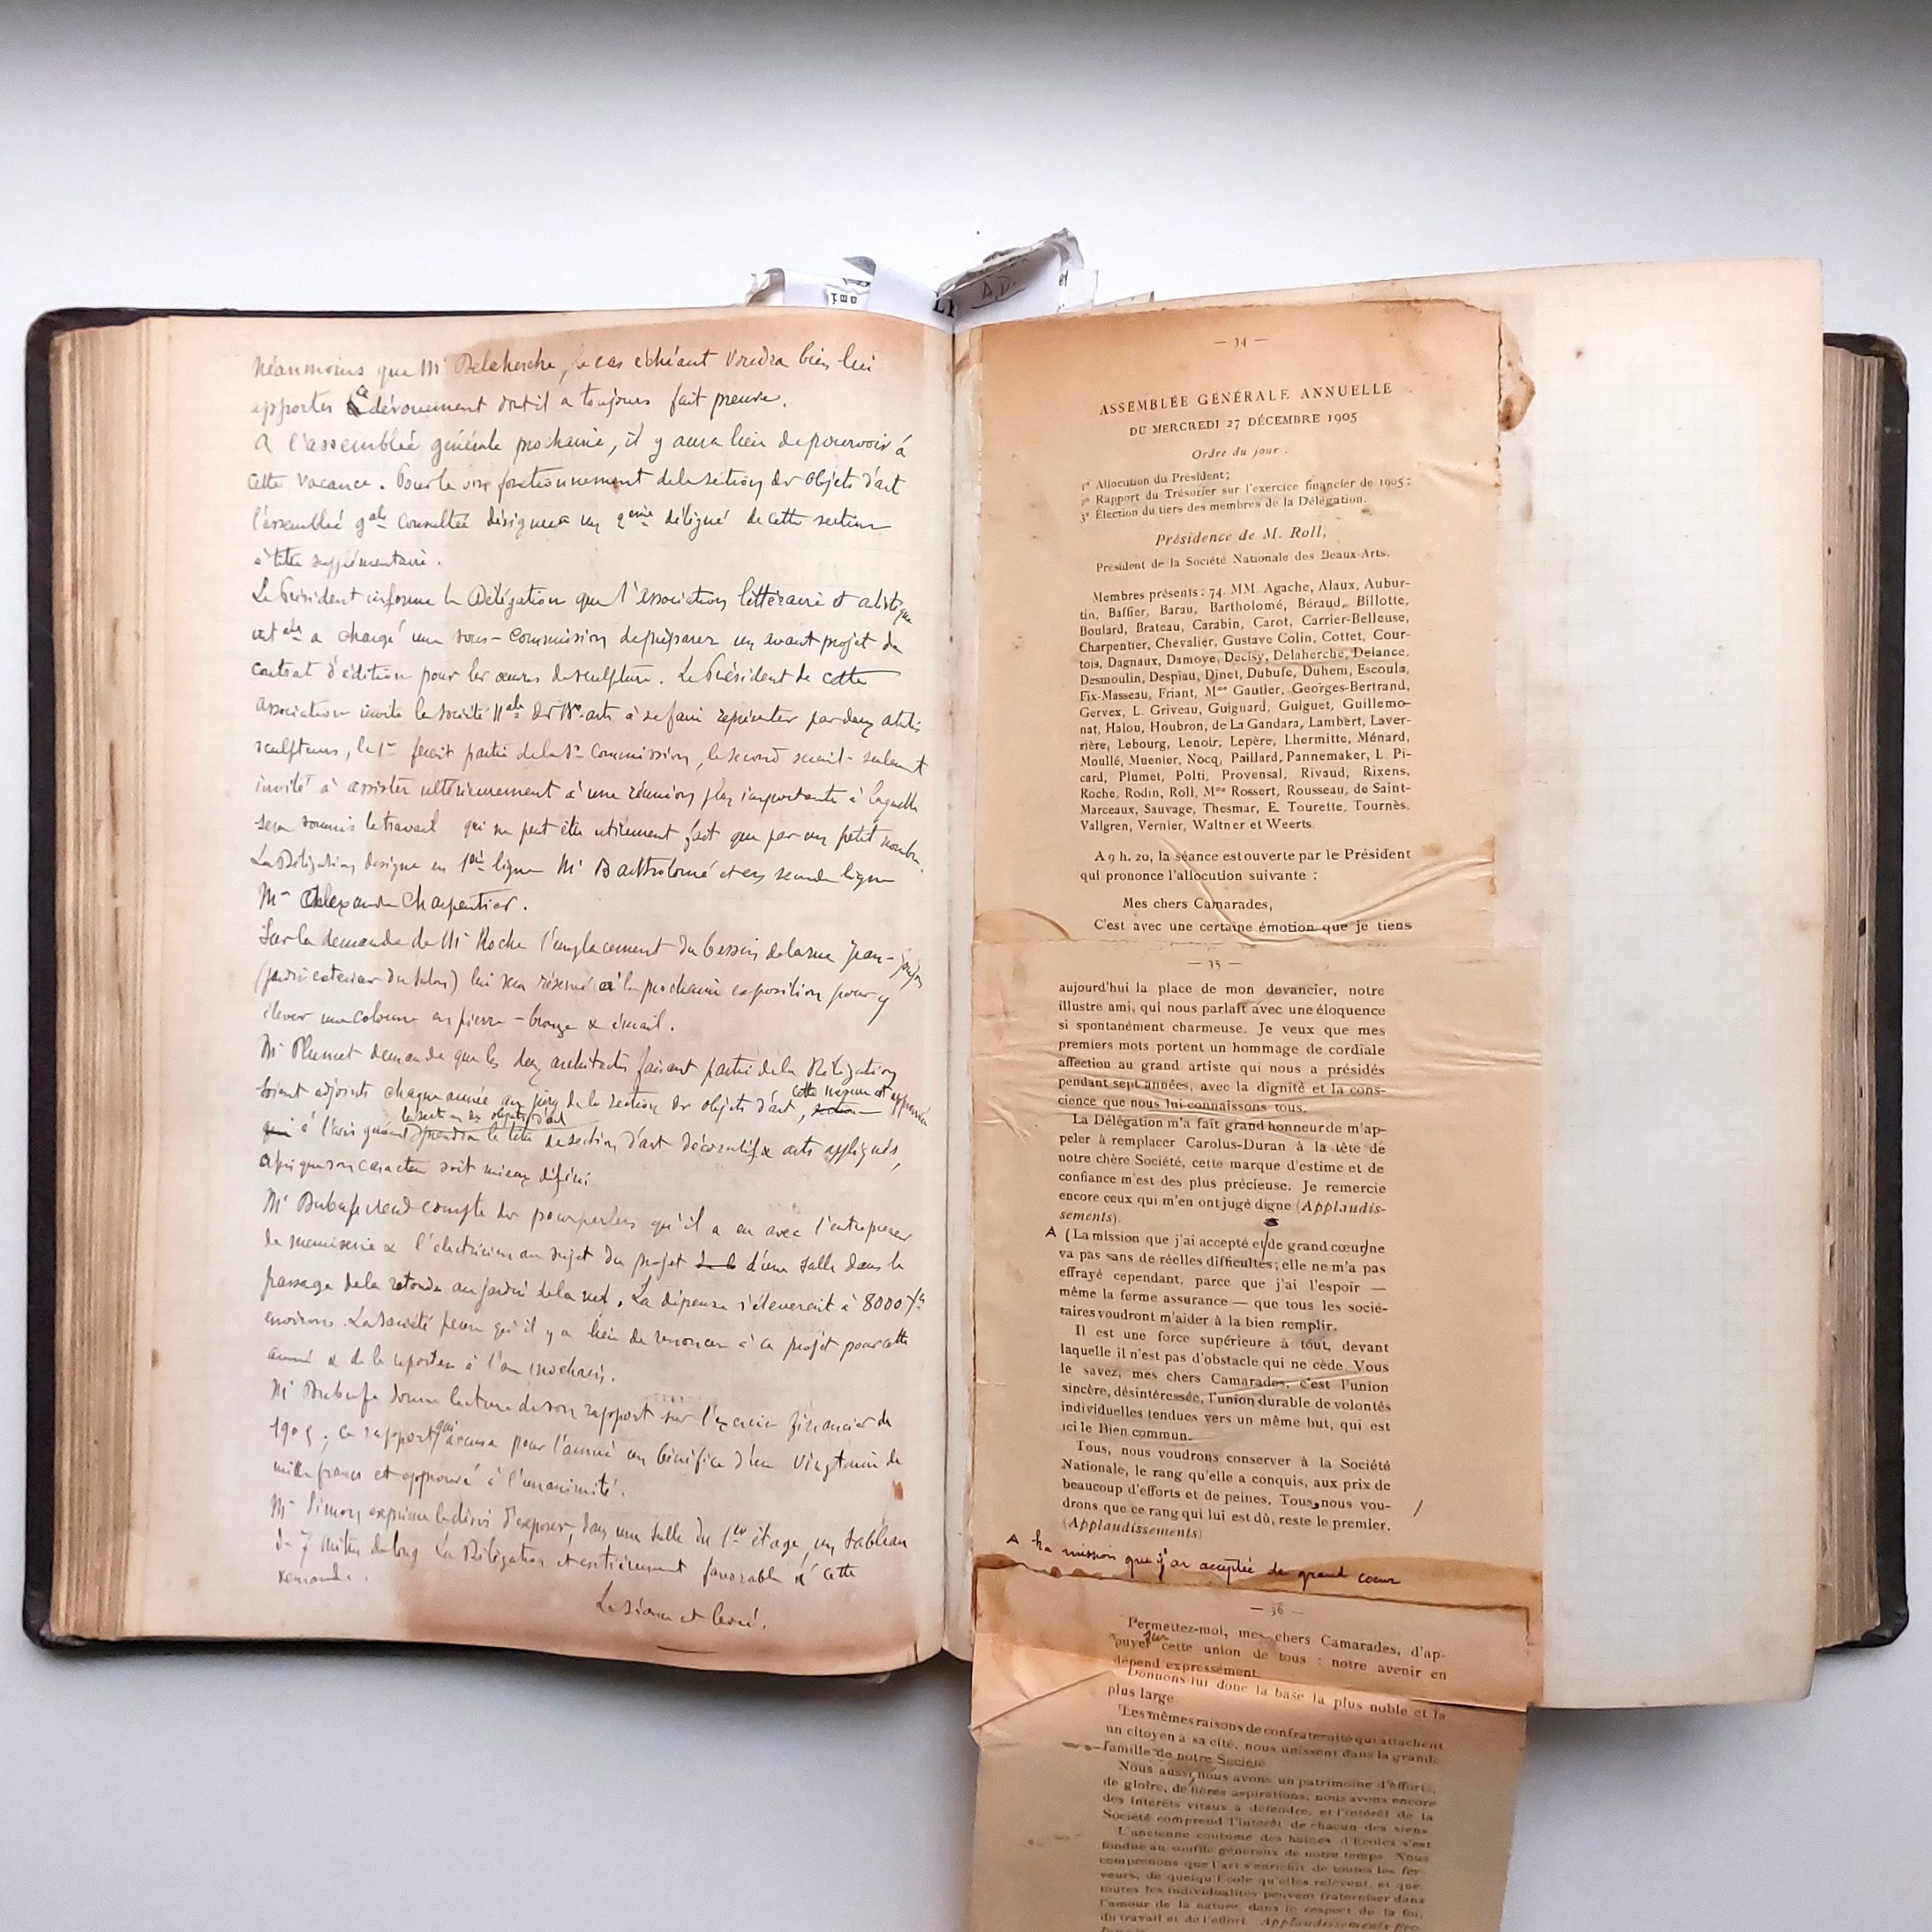 Néanmoins que Mr Delaherche, le cas échéant voudra bien lui
apporter le dévouement dont il a toujours fait preuve.
A l'assemblée générale prochaine, il y aura lieu de pourvoir à
cette vacance. Pour le bon fonctionnement de la section des Objets d'art
l'assemblée gale consultée désignera un 2ème délégué de cette section
à titre supplémentaire.
Le Président informe la Délégation que l'association littéraire et artistique
a chargé une sous-commission de préparer un avant projet de
contrat d'édition pour les œuvres de sculpture. Le Président de cette
association invite la Société Nale des Bx-arts à se faire représenter par deux
sculpteurs, le 1er ferait partie de la Ss Commission, le second serait seulement
invité à assister ultérieurement à une réunion plus importante à laquelle
sera soumis le travail qui ne peut être utilement fait que par un petit nombre.
La Délégation désigne en 1ère ligne Mr Bartholomé et en seconde ligne
Mr Alexandre Charpentier.
Sur la demande de Mr Roche l'emplacement du bassin de la rue Jean-Goujon
(jardin exterieur du Salon) lui sera réservé à la prochaine exposition pour y
élever une colonne en pierre - bronze & émail.
Mr Plumet demande que les deux architectes faisant partie de la Délégation
soient adjoints chaque année au jury de la section des objets d'art, cette mesure est approuvée
la section des objets d'art
prendra le titre de section d'art décoratif & arts appliqués,
afin que son caractère soit mieux défini
Mr Dubufe rend compte des pourparlers qu'il a eu avec l'entrepreneur
de menuiserie & l'électricien au sujet du projet d'une salle dans le
passage de la rotonde au jardin de la nef. La dépense s'éleverait à 8000 frs
environ. La Société pense qu'il y a lieu de renoncer à ce projet pour cette
année & de le reporter à l'an prochain.
Mr Dubufe donne lecture de son rapport sur l'exercice financier de
1905; ce rapport qui accuse pour l'année un bénéfice d'une vingtaine de
mille francs est approuvé à l'unanimité.
Mr Simon exprime le désir d'exposer, dans une salle du 1er étage, un tableau
de 7 mètres de long. La Délégation est entièrement favorable à cette
demande.
La séance est levée.
— 34 —
ASSEMBLÉE GÉNÉRALE ANNUELLE
DU MERCREDI 27 DÉCEMBRE 1905
Ordre du jour :
1° Allocution du Président;
2° Rapport du Trésorier sur l'exercice financier de 1905;
3° Élection du tiers des membres de la Délégation.
Présidence de M. Roll,
Président de la Société Nationale des Beaux-Arts.
Membres présents : 74. MM. Agache, Alaux, Aubur-
tin, Baffier, Barau, Bartholomé, Béraud, Billotte,
Boulard, Brateau, Carabin, Carot, Carrier-Belleuse,
Charpentier, Chevalier, Gustave Colin, Cottet, Cour-
tois, Dagnaux, Damoye, Decisy, Delaherche, Delance,
Desmoulin, Despiau, Dinet, Dubufe, Duhem, Escoula,
Fix-Masseau, Friant, Mme Gautier, Georges-Bertrand,
Gervex, L. Griveau, Guignard, Guiguet, Guillemo-
nat, Halou, Houbron, de La Gandara, Lambert, Laver-
rière, Lebourg, Lenoir, Lepère, Lhermitte, Ménard,
Moullé, Muenier, Nocq, Paillard, Pannemaker, L. Pi-
card, Plumet, Polti, Provensal, Rivaud, Rixens,
Roche, Rodin, Roll, Mme Rossert, Rousseau, de Saint-
Marceaux, Sauvage, Thesmar, E. Tourette, Tournès,
Vallgren, Vernier, Waltner et Weerts.
A 9 h. 20, la séance est ouverte par le Président
qui prononce l'allocution suivante :
Mes chers Camarades,
C'est avec une certaine émotion que je tiens
— 35 —
aujourd'hui la place de mon devancier, notre
illustre ami, qui nous parlait avec une éloquence
si spontanément charmeuse. Je veux que mes
premiers mots portent un hommage de cordiale
affection au grand artiste qui nous a présidés
pendant sept années, avec la dignité et la cons-
cience que nous lui connaissons tous.
La Délégation m'a fait grand honneur de m'ap-
peler à remplacer Carolus-Duran à la tête de
notre chère Société, cette marque d'estime et de
confiance m'est des plus précieuse. Je remercie
encore ceux qui m'en ont jugé digne (Applaudis-
sements).
A (La mission que j'ai accepté et de grand cœur) ne
va pas sans de réelles difficultés; elle ne m'a pas
effrayé cependant, parce que j'ai l'espoir —
même la ferme assurance — que tous les socié-
taires voudront m'aider à la bien remplir.
Il est une force supérieure à tout, devant
laquelle il n'est pas d'obstacle qui ne cède. Vous
le savez, mes chers Camarades, c'est l'union
sincère, désintéressée, l'union durable de volontés
individuelles tendues vers un même but, qui est
ici le Bien commun.
Tous, nous voudrons conserver à la Société
Nationale, le rang qu'elle a conquis, aux prix de
beaucoup d'efforts et de peines. Tous, nous vou-
drons que ce rang qui lui est dû, reste le premier.
(Applaudissements)
A La mission que j'ai acceptée de grand cœur
— 36 —
Permettez-moi, mes chers Camarades, d'ap-
puyer sur cette union de tous : notre avenir en
dépend expressément.
Donnons-lui donc la base la plus noble et la
plus large.
Les mêmes raisons de confraternité qui attachent
un citoyen à sa cité, nous unissent dans la grande
famille de notre Société
Nous aussi, nous avons un patrimoine d'efforts,
de gloire, de fières aspirations, nous avons encore
des intérêts vitaux à défendre, et l'intérêt de la
Société comprend l'intérêt de chacun des siens
L'ancienne coutume des haines d'Écoles s'est
fondue au souffle généreux de notre temps. Nous
comprenons que l'art s'enrichit de toutes les fer-
veurs, de quelqu'École qu'elles relèvent, et que
toutes les individualités peuvent fraterniser dans
l'amour de la nature, dans le respect de la foi,
du travail et de l'effort. Applaudissements pro-
A.D.